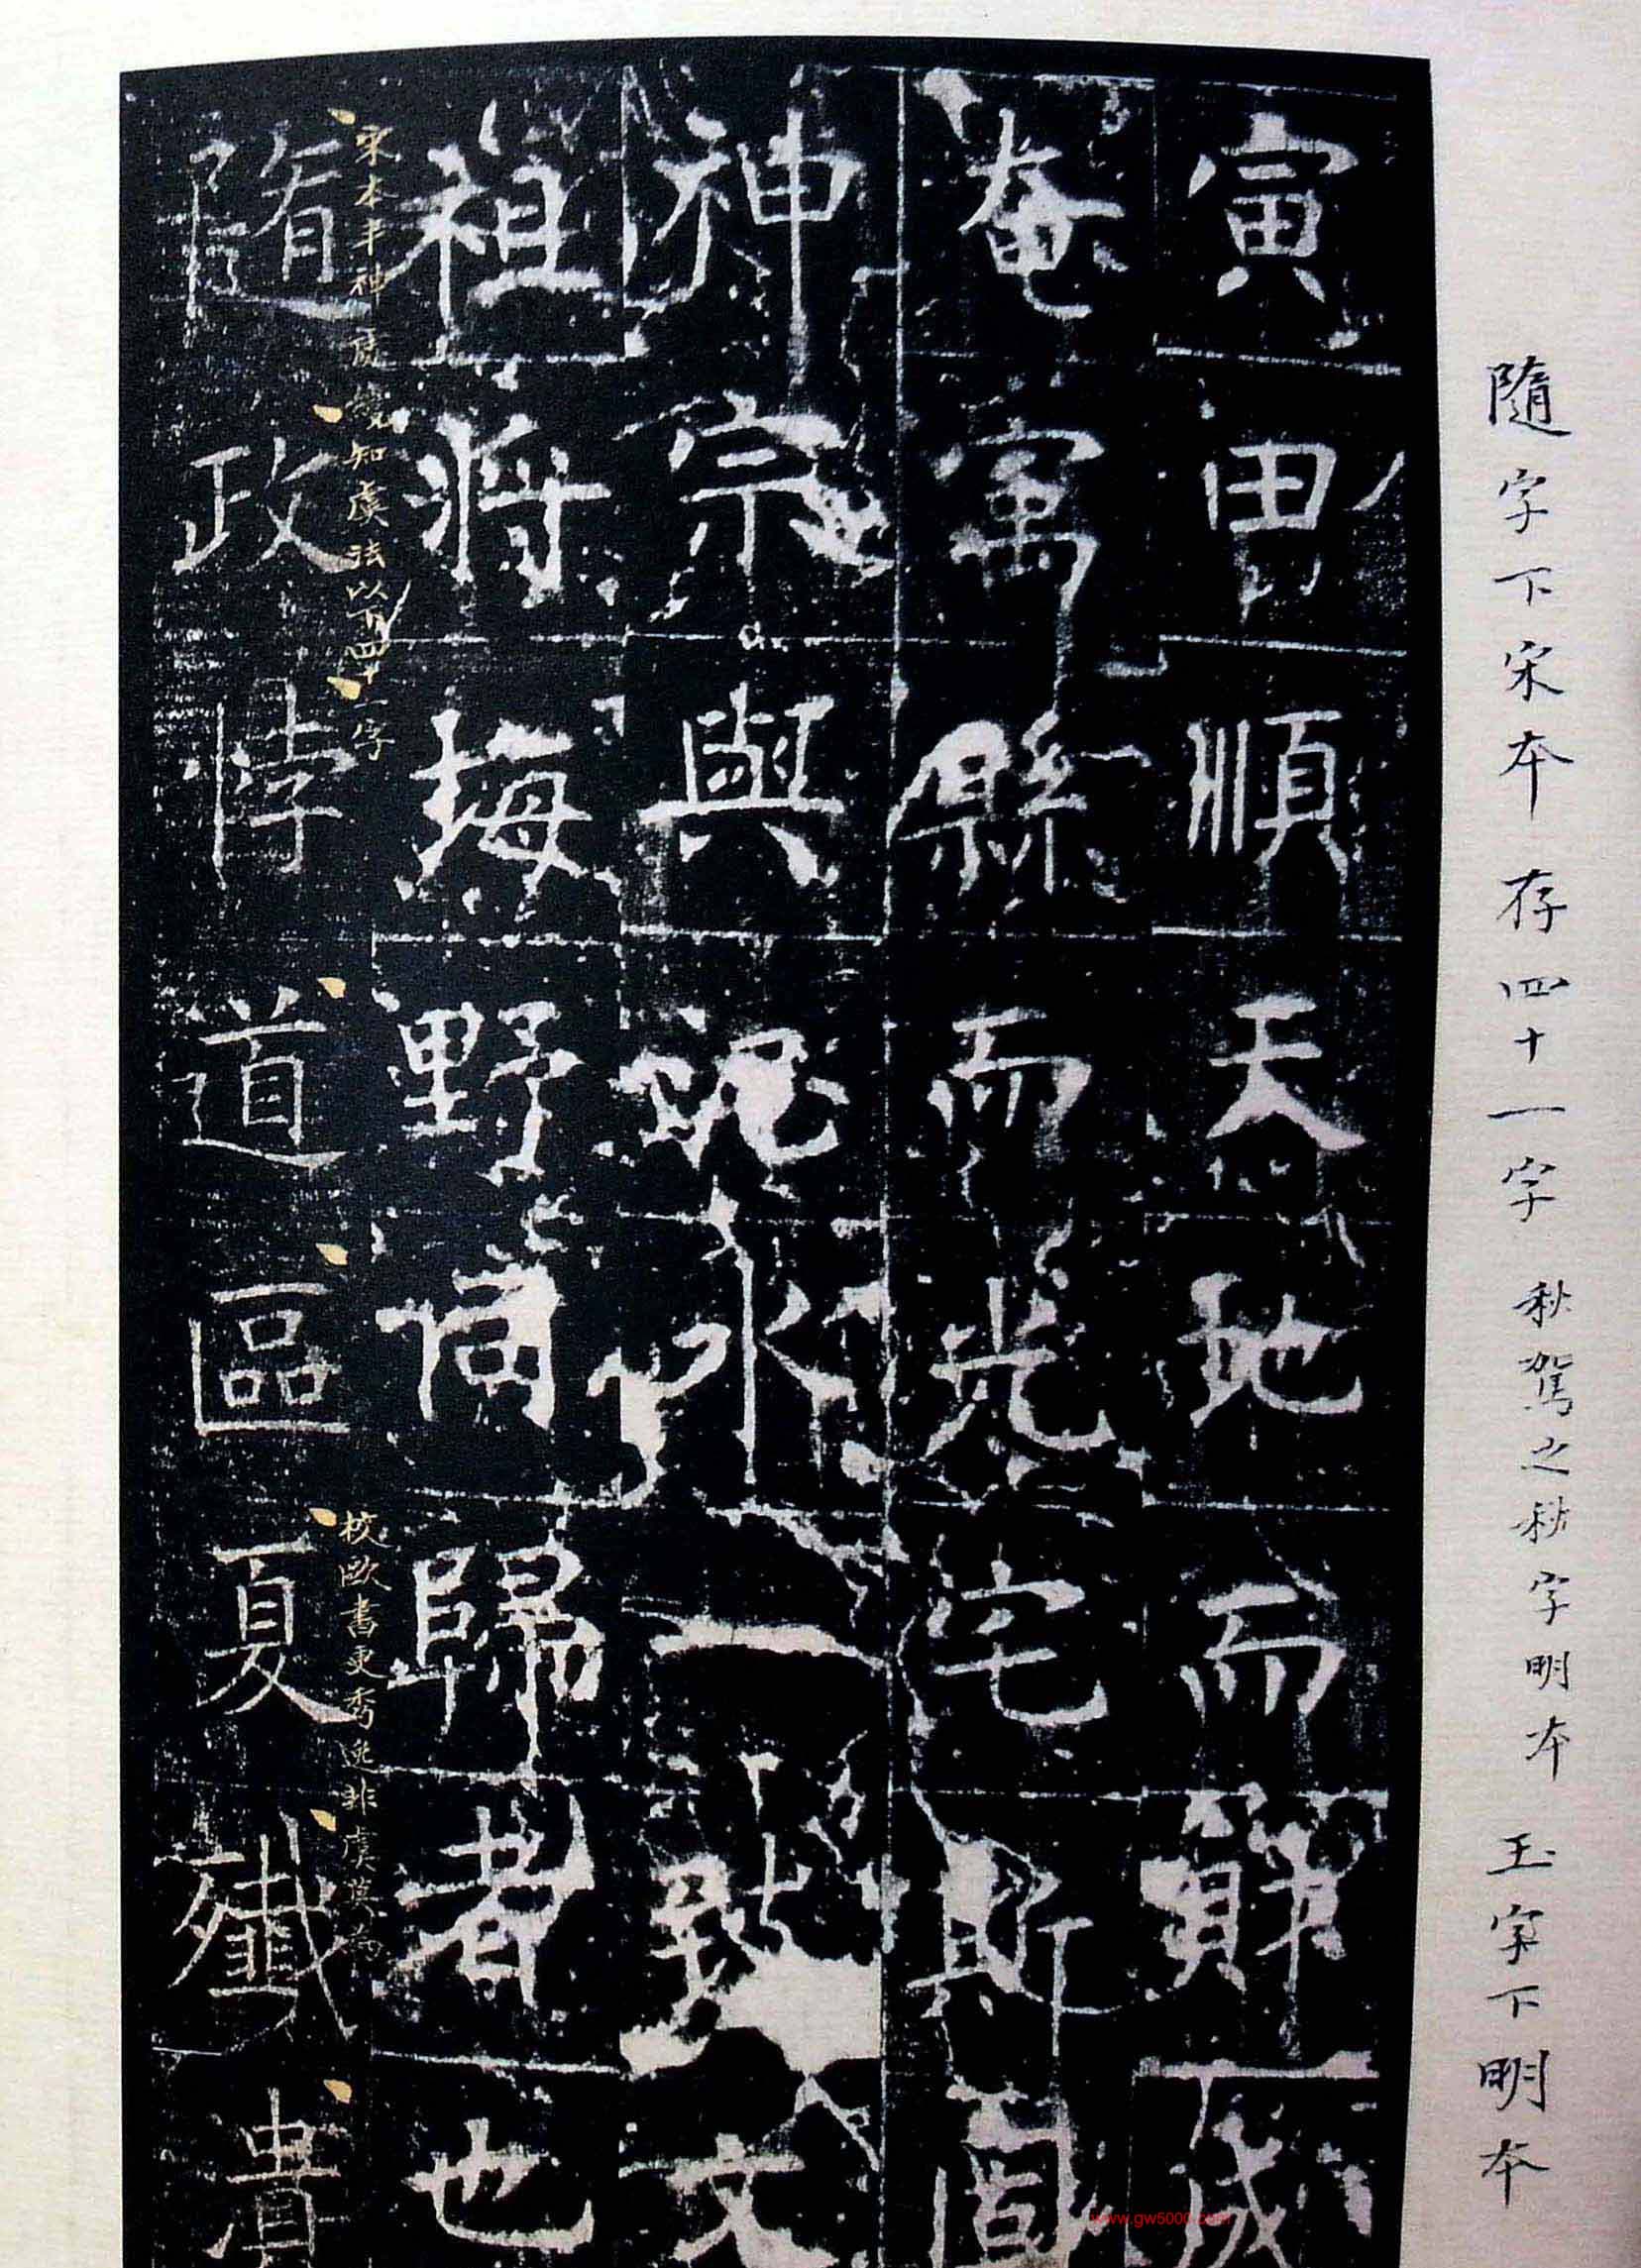 隨字下宋本存四十一字 秋駕之秋字明本 玉字下明本
寅由順天地而財成
奄寓縣而光宅斯固
神宗與水一致文
祖將坶野同歸者也
宋本半神處幾知虞法以下四十一字
校歐書更秀逸非虞莫為
隨政悖道區夏殲
www.gw5000.com